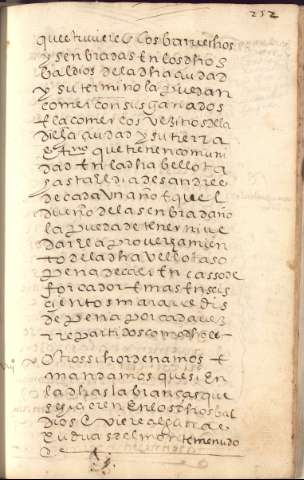 252
que tuviere los barvechos
y senbradas en los dhos
baldios de la dha ciudad
y su termino la puedan
comer con sus ganados
e la comer los vezinos de la
dicha ciudad y su tierra
que tienen comuni
dad en la dha bellota
hasta el dia de sand andres
de cada un año e que el
dueño de la senbrada no
la pueda detener ni ve
dar el aprovechamien
to de la dha vellota so
pena de caer en caso de
forçador e mas en seis
cientos maravedis
de pena por cada vez
rrepartidos como dho es
Otrossi hordenamos e
mandamos que si en
la dhas labranças que
se hizieren en los dhos bal
dios e viere alguna e
del monte menudo
de